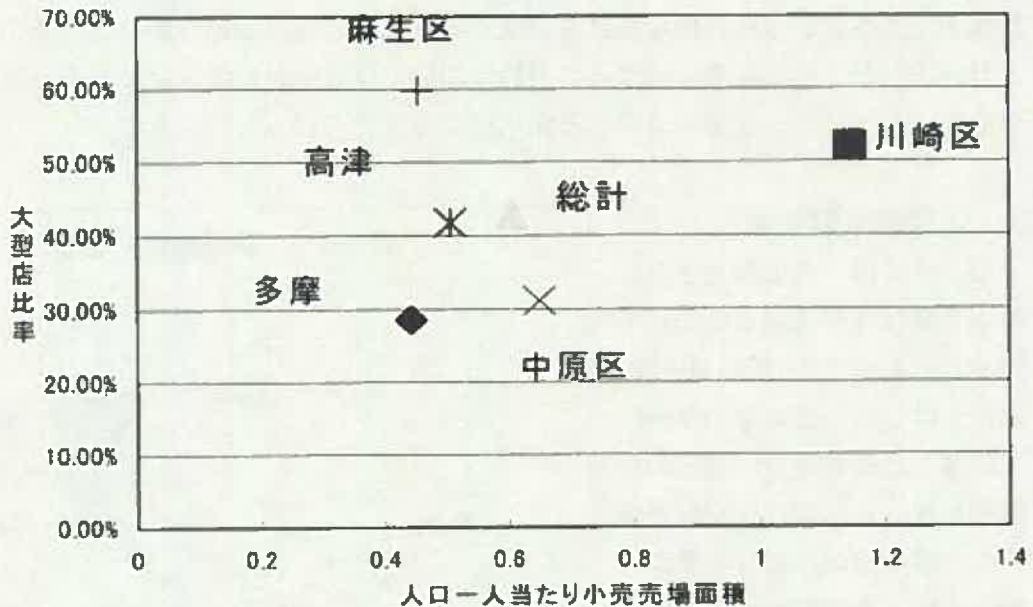 70.00%
60.00%
50.00%
40.00%
30.00%
20.00%
10.00%
0.00%
大型店比率
麻生区
川崎区
高津
総計
多摩
中原区
0
0.2
0.4
0.6
0.8
1
1.2
1.4
人口一人当たり小売売場面積